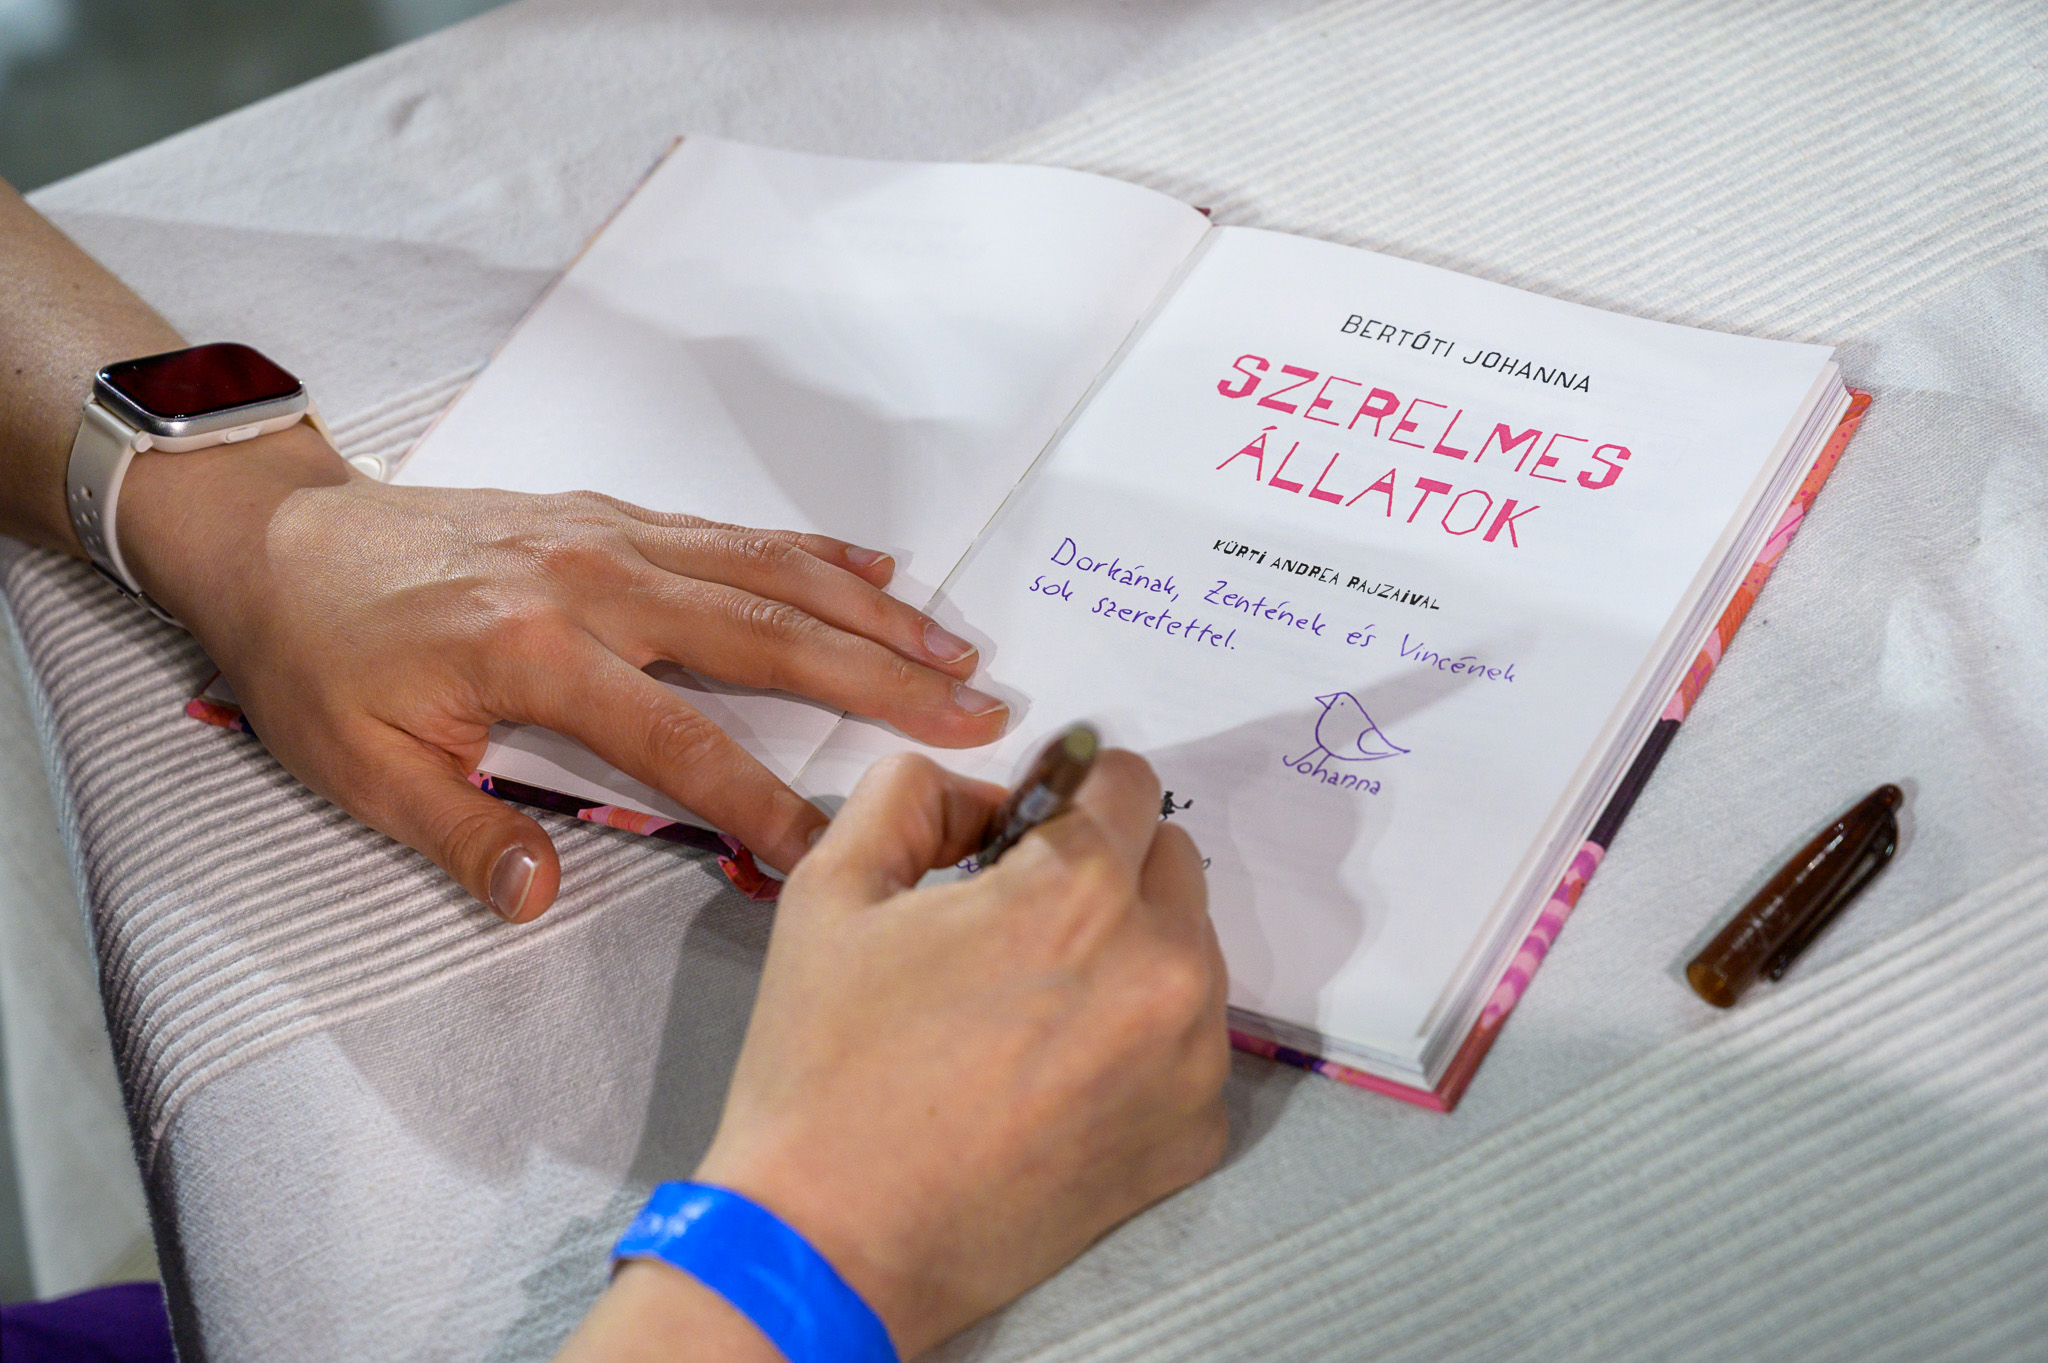 BERTÓTI JOHANNA
SZERELMES
ÁLLATOK
KÜRTI ANDREA RAJZAIVAL
Dorkának, Zentének és Vincének
sok szeretettel.
Johanna